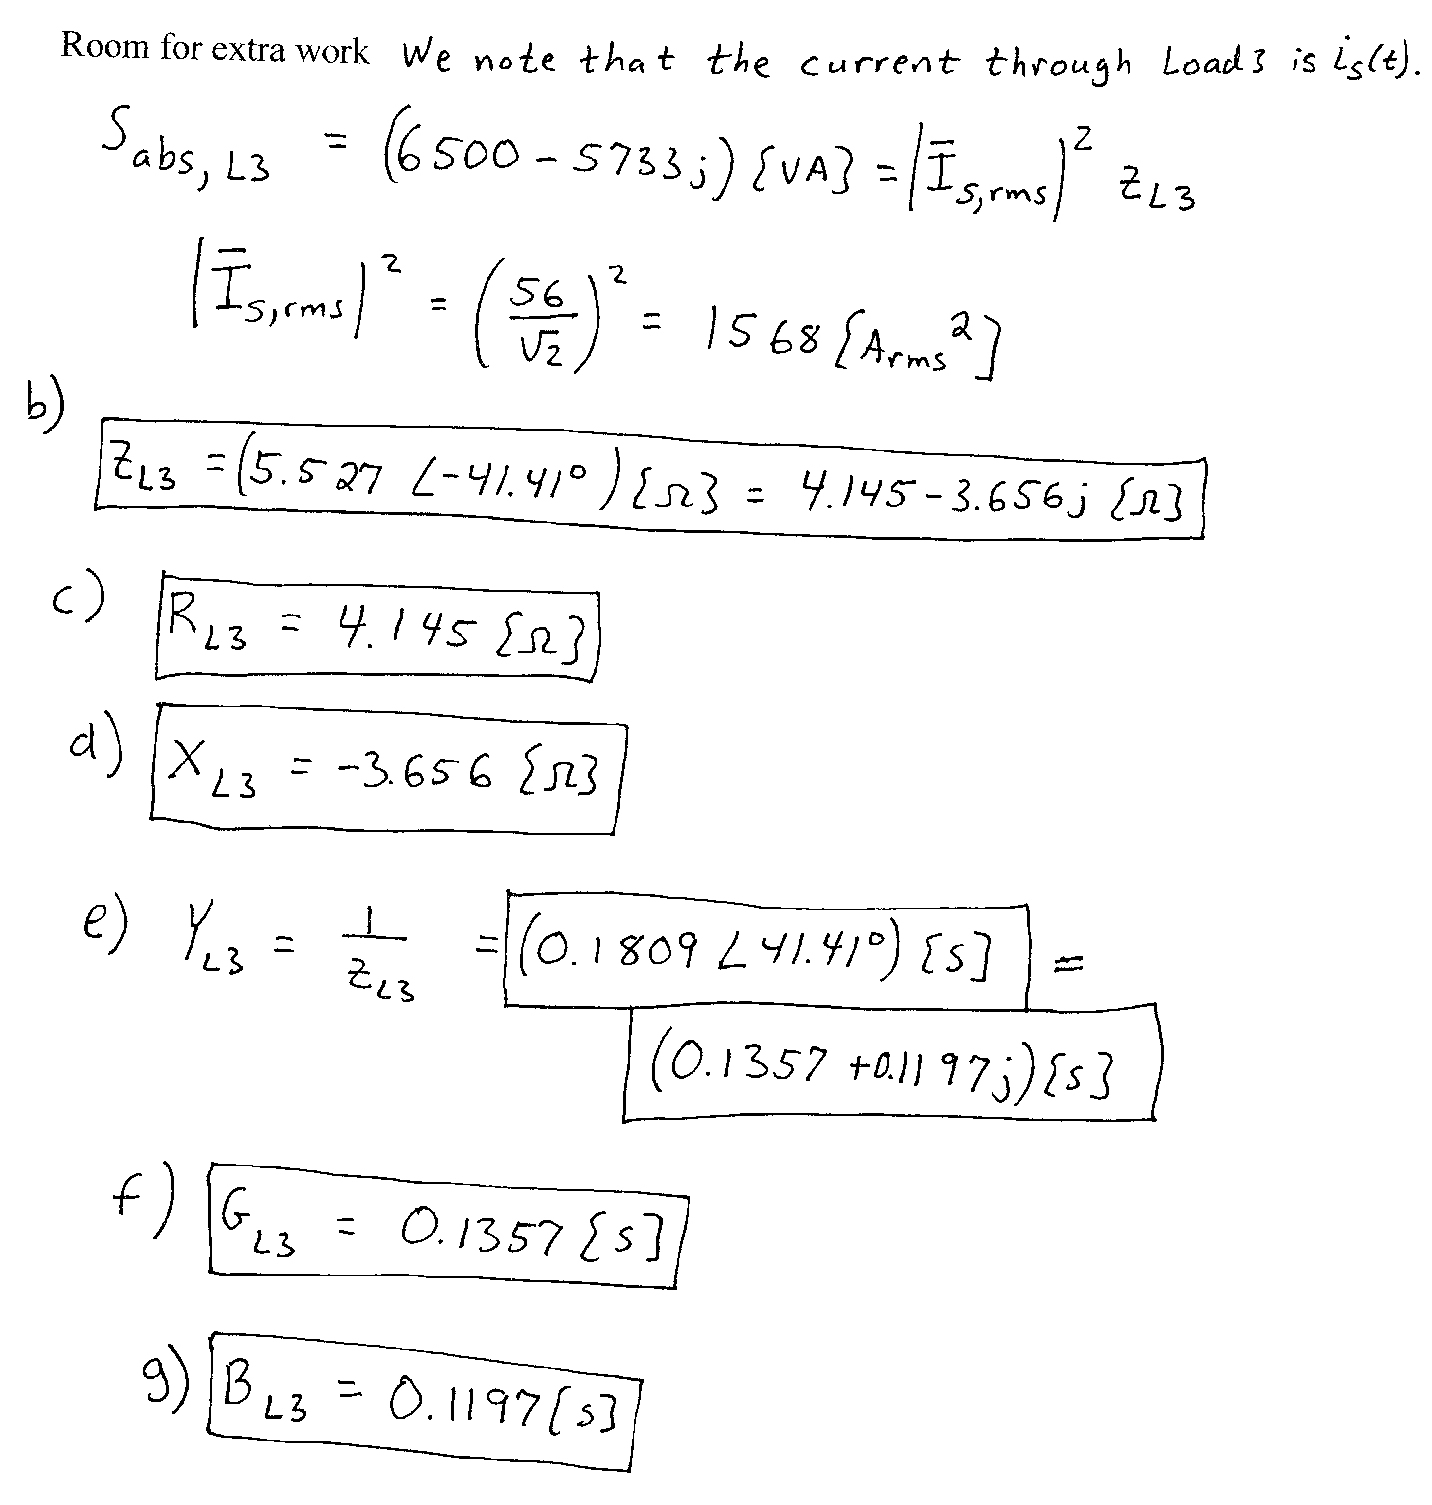 Room for extra work We note that the current through Load 3 is is(t).
Sabs, L3 = (6500 - 5733j) {VA} = |Īs,rms|² ZL3
|Īs,rms|² = (56/√2)² = 1568 {Arms²}
b)
ZL3 = (5.527 ∠-41.41°) {Ω} = 4.145 - 3.656j {Ω}
c) RL3 = 4.145 {Ω}
d) XL3 = -3.656 {Ω}
e) YL3 = 1/ZL3 = (0.1809 ∠41.41°) [S] =
(0.1357 + 0.1197j) [S]
f) GL3 = 0.1357 {S]
g) BL3 = 0.1197 [S]